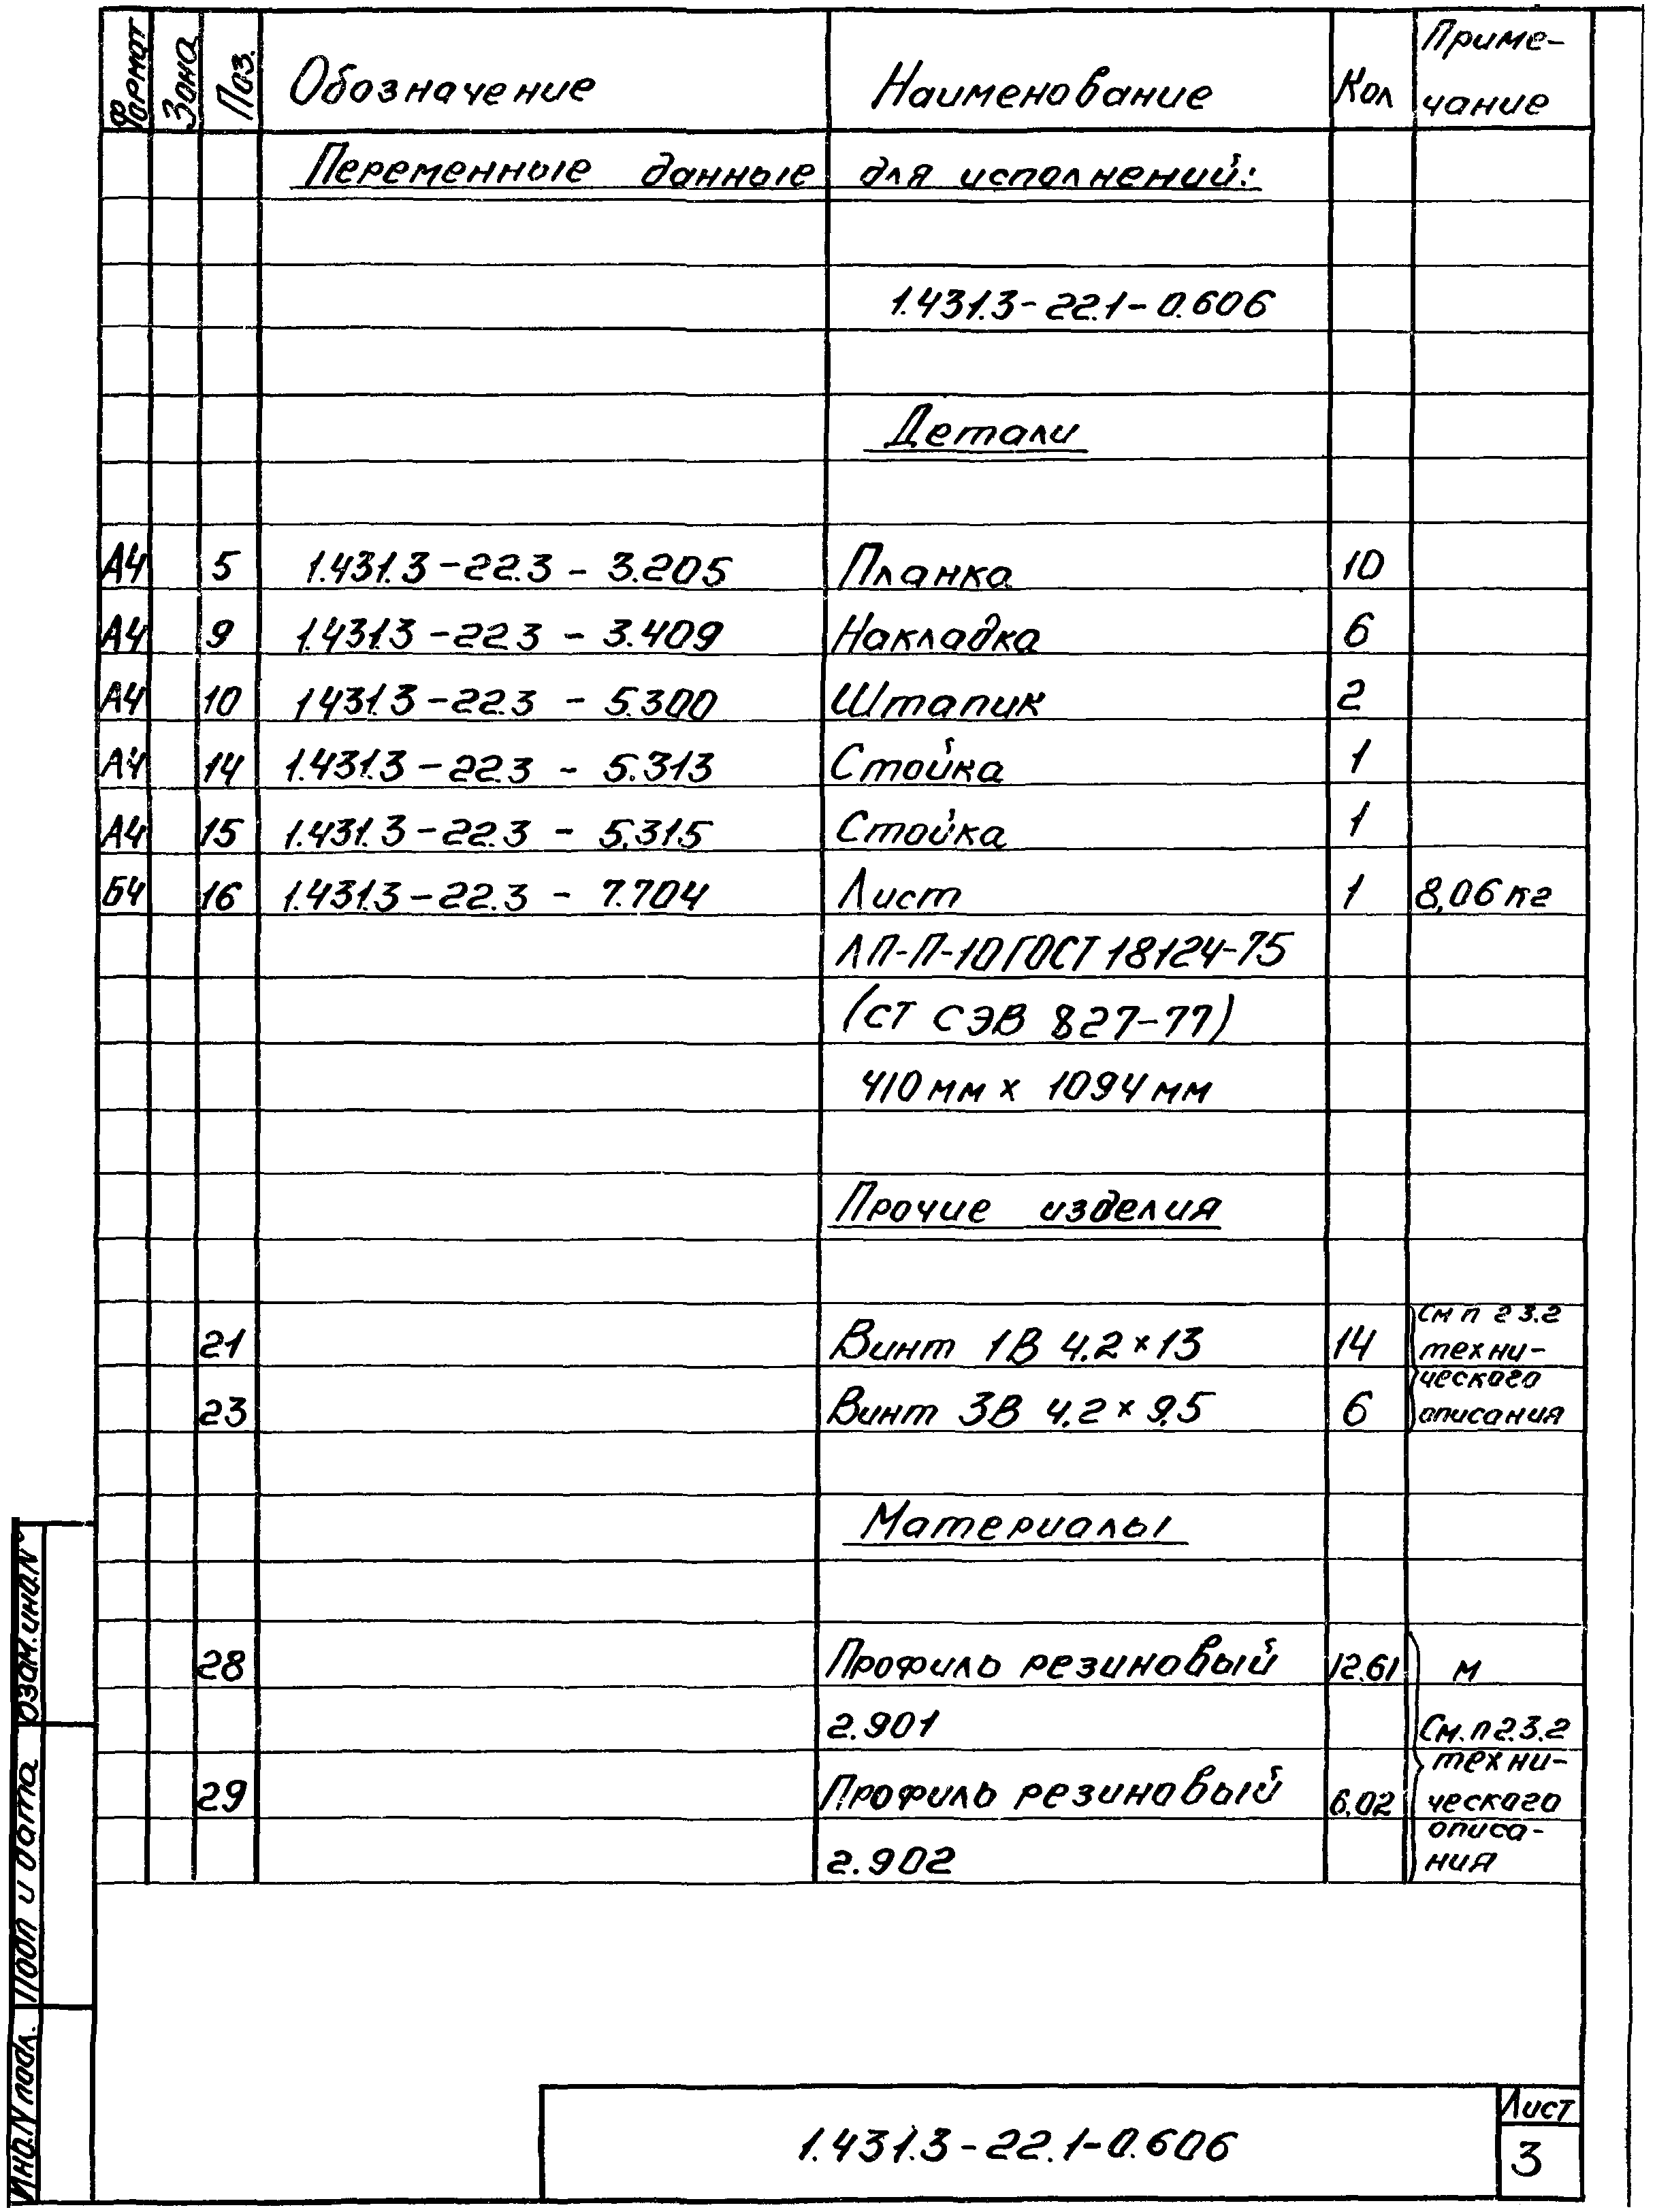 Формат Зона Поз. Обозначение Наименование Кол Приме-
чание
Переменные данные для исполнений:
1.431.3-22.1-0.606
Детали
А4 5 1.431.3-22.3-3.205 Планка 10
А4 9 1.431.3-22.3-3.409 Накладка 6
А4 10 1.431.3-22.3-5.300 Штапик 2
А4 14 1.431.3-22.3-5.313 Стойка 1
А4 15 1.431.3-22.3-5.315 Стойка 1
Б4 16 1.431.3-22.3-7.704 Лист 1 8,06 кг
ЛП-П-10 ГОСТ 18124-75
(СТ СЭВ 827-77)
410 мм х 1094 мм
Прочие изделия
См п 2.3.2
21 Винт 1В 4.2×13 14 техни-
ческого
23 Винт 3В 4.2×9.5 6 описания
Материалы
28 Профиль резиновый 12.61 м
2.901 См. п 2.3.2
техни-
29 Профиль резиновый 6.02 ческого
описа-
2.902 ния
Взам. инв. N
Подп и дата
Инв. N подл.
1.431.3-22.1-0.606
Лист
3